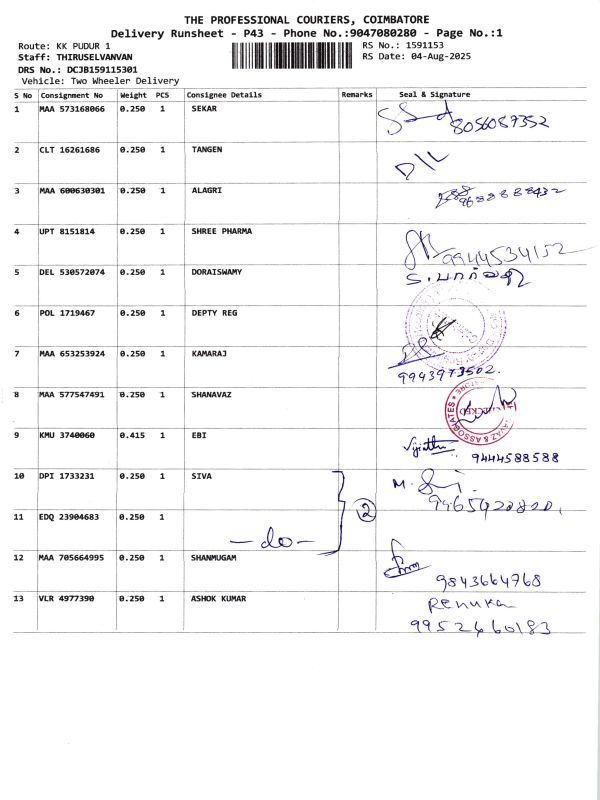 THE PROFESSIONAL COURIERS, COIMBATORE
Delivery Runsheet - P43 - Phone No.:9047080280 - Page No.:1
Route: KK PUDUR 1 RS No.: 1591153
Staff: THIRUSELVANVAN RS Date: 04-Aug-2025
DRS No.: DCJB159115301
Vehicle: Two Wheeler Delivery
S No Consignment No Weight PCS Consignee Details Remarks Seal & Signature
1 MAA 573168066 0.250 1 SEKAR 8056087352
2 CLT 16261686 0.250 1 TANGEN
3 MAA 600630301 0.250 1 ALAGRI
4 UPT 8151814 0.250 1 SHREE PHARMA 9944534152
5 DEL 530572074 0.250 1 DORAISWAMY
6 POL 1719467 0.250 1 DEPTY REG
7 MAA 653253924 0.250 1 KAMARAJ
9943973502.
8 MAA 577547491 0.250 1 SHANAVAZ
& ASSOCIATES
9 KMU 3740060 0.415 1 EBI
9444588588
10 DPI 1733231 0.250 1 SIVA M.
2
11 EDQ 23904683 0.250 1
-do-
12 MAA 705664995 0.250 1 SHANMUGAM
9843664768
13 VLR 4977390 0.250 1 ASHOK KUMAR Renuka
9952460183